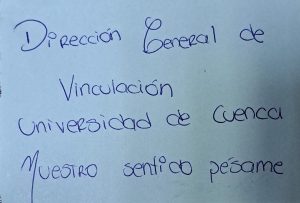 Dirección General de
Vinculación
Universidad de Cuenca
Nuestro sentido pésame